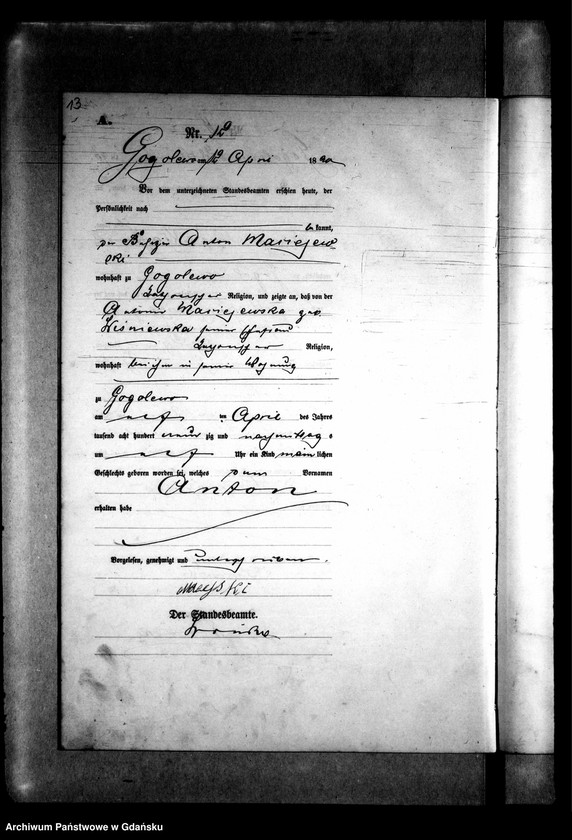 13
A.
Nr. 12
Gogolewo am 12 April 1890
Vor dem unterzeichneten Standesbeamten erschien heute, der
Persönlichkeit nach
kannt,
der Anton Maciejew
ski
wohnhaft zu Gogolewo
katholischer Religion, und zeigte an, daß von der
Antonie Maciejewska geb.
Wisniewska seiner Ehefrau
katholischer Religion,
wohnhaft bei ihm in seiner Wohnung
zu Gogolewo
am elf ten April des Jahres
tausend acht hundert neun zig und nachmittag s
um elf Uhr ein Kind männ lichen
Geschlechts geboren worden sei, welches Vornamen
Anton
erhalten habe
Vorgelesen, genehmigt und unterschrieben.
Der Standesbeamte.
Archiwum Państwowe w Gdańsku